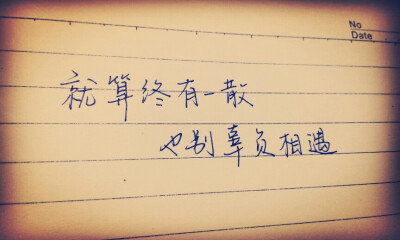 No
Date
就算终有一散
也别辜负相遇